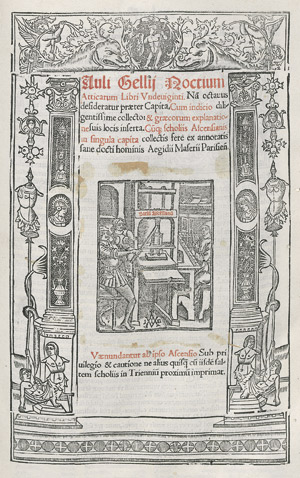 Auli Gellij Noctium
Atticarum Libri Vndeuiginti. Nā octauus
desideratur præter Capita, Cum indicio dili
gentissime collecto: & græcorum explicatio
ne suis locis inserta. Cūq; scholiis Ascensianis
in singula capita collectis fere ex annotatis
sane docti hominis Aegidii Maserii Parisien̄
Vænundantur ab ipso Ascensio Sub pri
uilegio & cautione ne alius quisq̄ cū iisdē sal
tem scholiis in Triennio proximū imprimat.